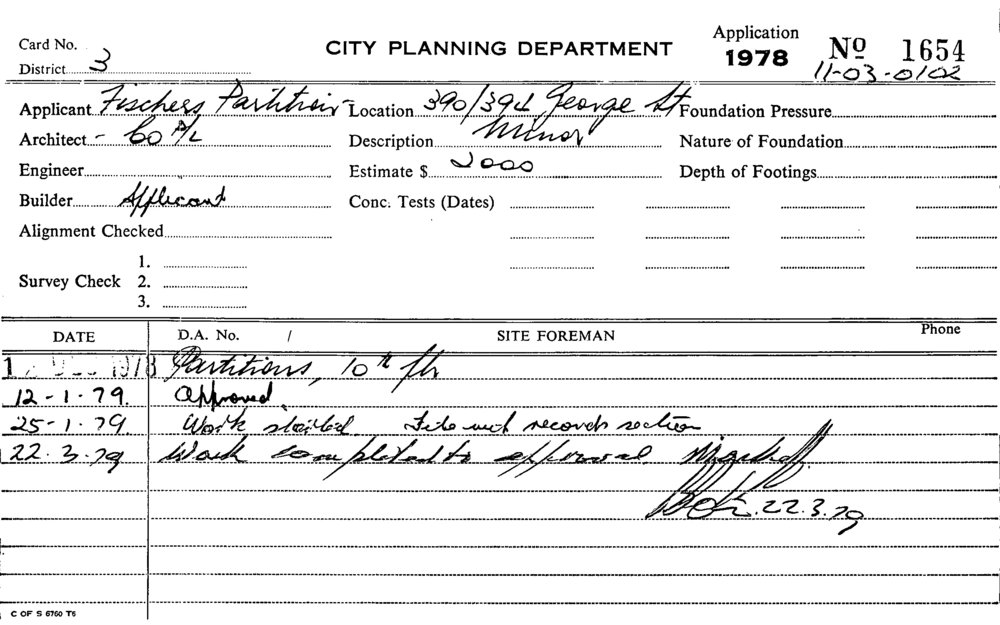 Card No. CITY PLANNING DEPARTMENT Application 1978 No 1654
District 3 11-03-0102
Applicant Fischers Partition Location 390/394 George St Foundation Pressure
Architect - Co P/L Description Minor Nature of Foundation
Engineer Estimate $ 2000 Depth of Footings
Builder Applicant Conc. Tests (Dates)
Alignment Checked
1.
Survey Check 2.
3.
DATE D.A. No. / SITE FOREMAN Phone
1 DEC 1978 Partitions, 10th flr
12-1-79. Approved.
25-1-79. Work started. File records section
22.3.79 Work completed to approval
22.3.79
C OF S 6760 T6